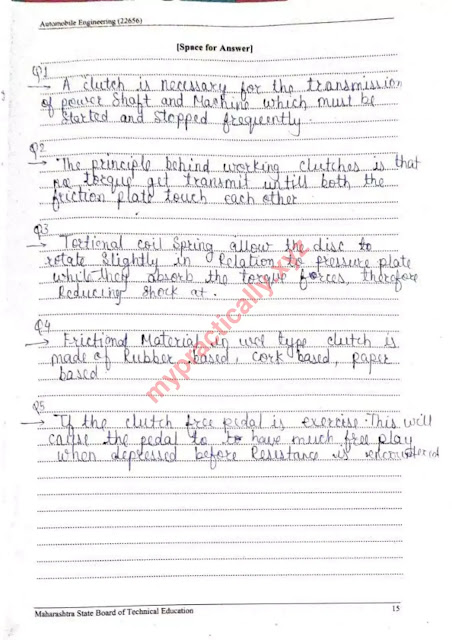 Automobile Engineering (22656)
[Space for Answer]
Q1
→ A clutch is necessary for the transmission
of power shaft and Machine which must be
started and stopped frequently.
Q2
→ The principle behind working clutches is that
no torque get transmit untill both the
friction plate touch each other
Q3
→ Tortional coil Spring allow the disc to
rotate slightly in Relation to pressure plate
while they absorb the torque forces, therefore
Reducing shock at.
Q4
→ Frictional Material in wet type clutch is
made of Rubber based, cork based, paper
based
Q5
→ If the clutch free pedal is exercise. This will
cause the pedal to to have much free play
when depressed before Resistance is encountered
mypractically.xyz
Maharashtra State Board of Technical Education
15